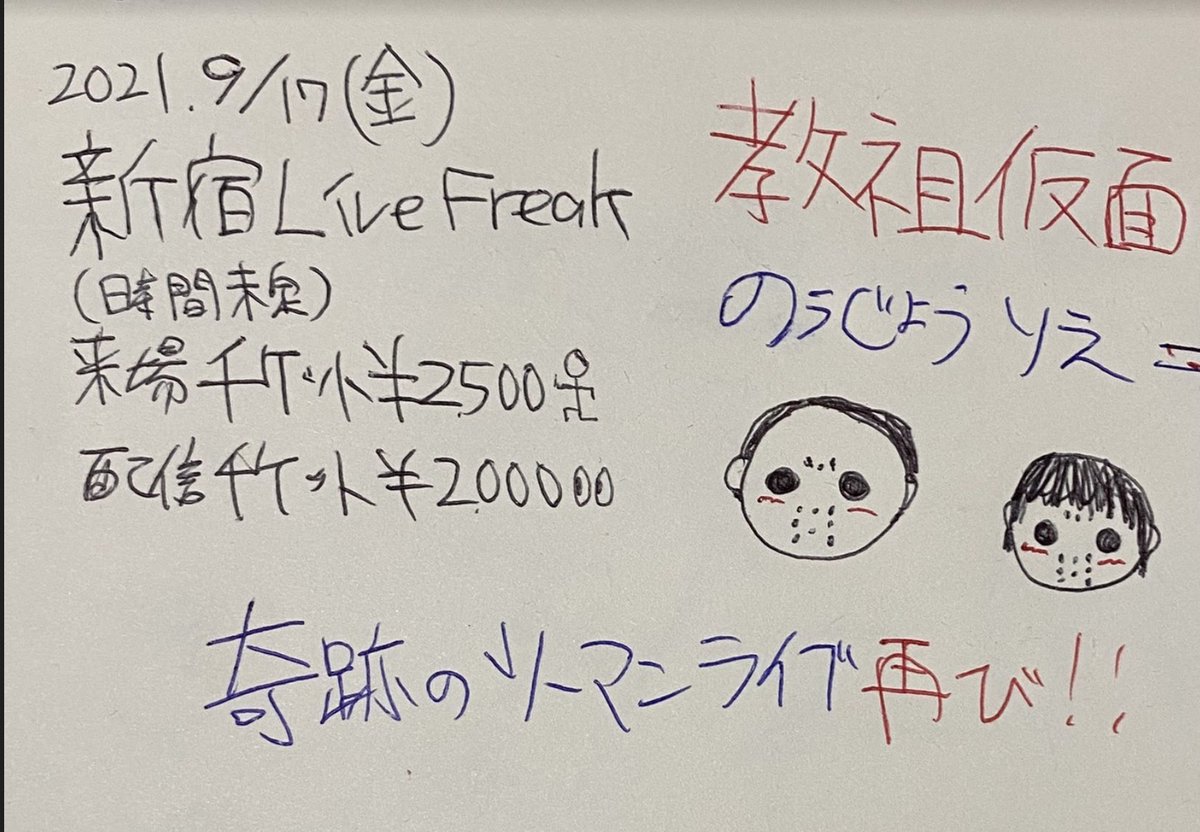 2021.9/17(金)
新宿Live Freak
(時間未定)
来場チケット¥2500
配信チケット¥2000
教祖仮面
のうじょうりえ
奇跡のツーマンライブ再び!!